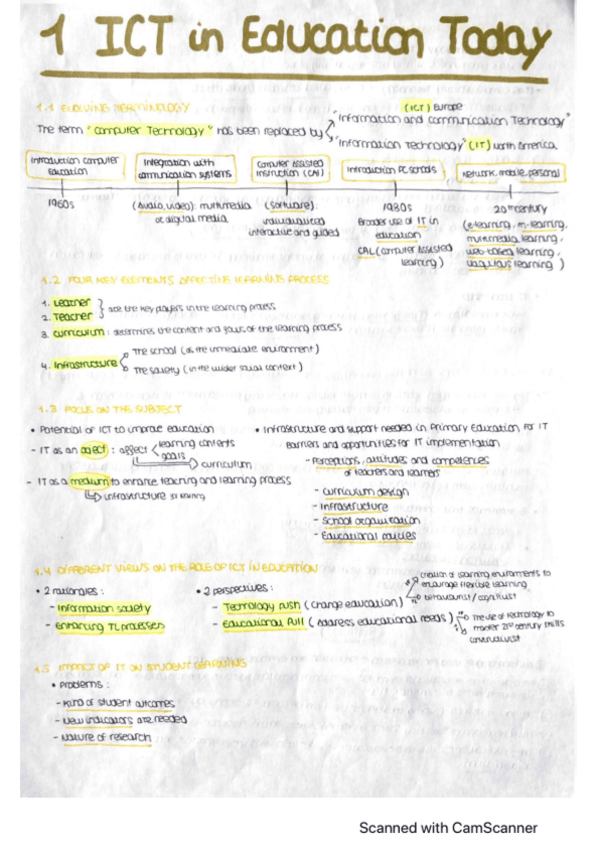 1 ICT in Education Today
1.1 EVOLVING TERMINOLOGY
(ICT) Europe
"Information and communication Technology"
The term "Computer Technology" has been replaced by
"Information Technology" (IT) north America.
Introduction computer education
Integration with communication systems
Computer Assisted Instruction (CAI)
Introduction PC schools
Network, mobile, personal
1960s
(Audio, video): multimedia or digital media
(Software): individualized interactive and guided
1980s
Broader use of IT in education
CAL (Computer Assisted learning)
20th century
(e-learning, m-learning, multimedia learning, web-based learning, ubiquitous learning)
1.2 FOUR KEY ELEMENTS AFFECTING LEARNING PROCESS
1. Learner
2. Teacher
are the key players in the learning process
3. Curriculum: determines the content and goals of the learning process
4. Infrastructure
The school (as the immediate environment)
The society (in the wider social context)
1.3 FOCUS ON THE SUBJECT
• Potential of ICT to improve education
- IT as an object: affect
learning contents
goals
curriculum
- IT as a medium to enhance teaching and learning process
infrastructure for learning
• Infrastructure and support needed in Primary Education for IT
Barriers and opportunities for IT implementation
- Perceptions, attitudes and competences
of teachers and learners
- Curriculum design
- Infrastructure
- School organization
- Educational policies
1.4 DIFFERENT VIEWS ON THE ROLE OF ICT IN EDUCATION
• 2 rationales:
- Information society
- Enhancing TL processes
• 2 perspectives:
- Technology Push (change education)
creation of learning environments to
encourage flexible learning
behaviourist / cognitivist
- Educational Pull (address educational needs)
The use of technology to
master 21st century skills
constructivist
1.5 IMPACT OF IT ON STUDENT LEARNING
• Problems:
- Kind of student outcomes
- New indicators are needed
- Nature of research
Scanned with CamScanner